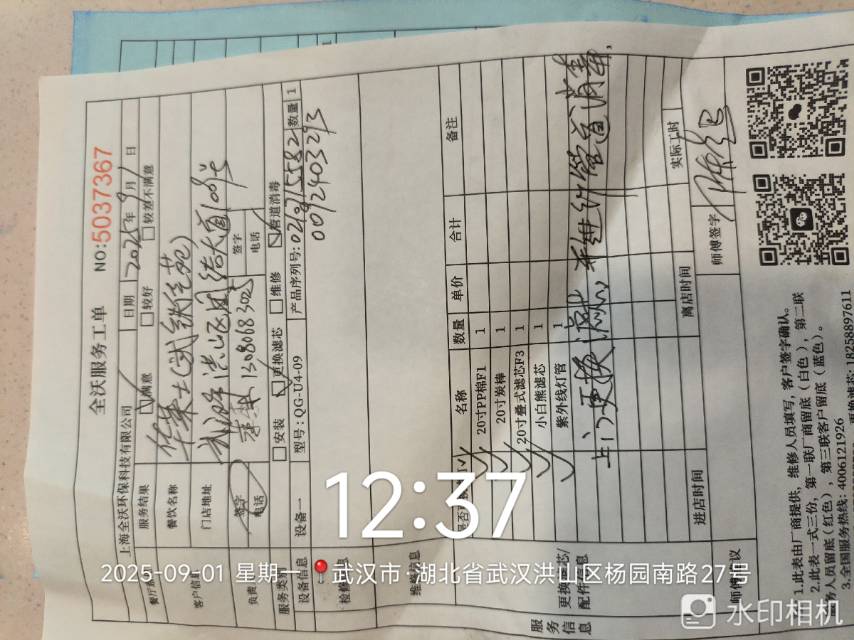 全沃服务工单
NO:5037367
上海全沃环保科技有限公司
日期 2025年9月1日
服务结果 满意 较好 较差不满意
餐饮名称 华莱士(武铁佳苑)
门店地址
签字
电话 13080083025
签字
电话
服务类别 安装 更换滤芯 维修 管道消毒
设备信息 设备一 型号:QG-U4-09 产品序列号: 数量 1
0092403293
名称 数量 单价 合计 备注
20寸PP棉F1 1
20寸炭棒 1
20寸叠式滤芯F3 1
小白熊滤芯 1
紫外线灯管 1
更换滤芯/
配件信息
上门更换滤芯,并进行管道消毒,
进店时间 离店时间 实际工时
师傅建议 师傅签字
服务信息
1.此表由厂商提供,维修人员填写,客户签字确认。
2.此表一式三份,第一联厂商留底(白色),第二联
务人员留底(红色),第三联客户留底(蓝色)。
3.全国服务热线:4006121926 更换滤芯:18258897611
12:37
2025-09-01 星期一 武汉市·湖北省武汉洪山区杨园南路27号
水印相机